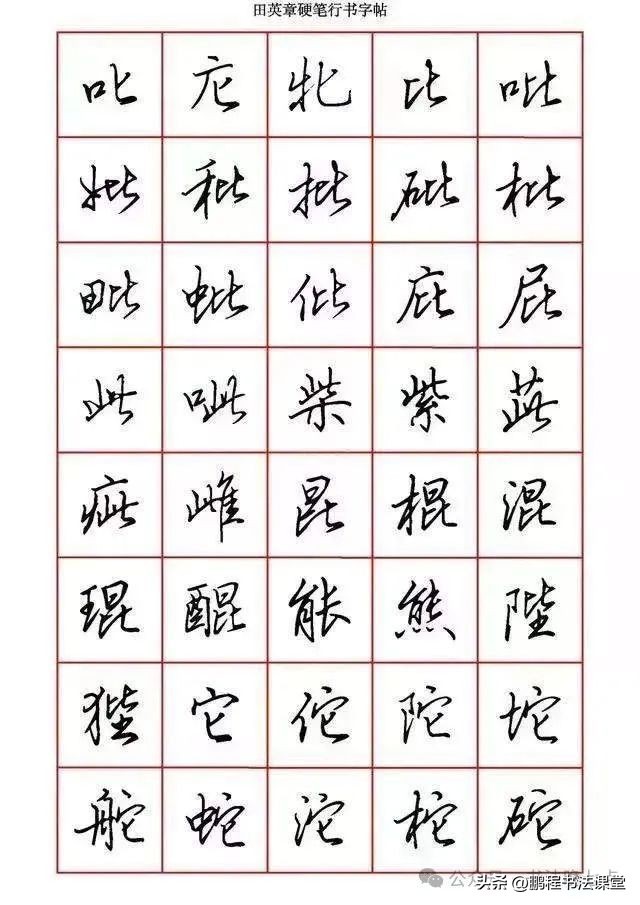 田英章硬笔行书字帖
叱 庀 牝 比 吡
妣 秕 批 砒 枇
毗 蚍 仳 庇 屁
此 呲 柴 紫 茈
疵 雌 昆 棍 混
琨 醌 能 熊 陛
狴 它 佗 陀 坨
舵 蛇 沱 柁 砣
公众号
头条@鹏程书法课堂